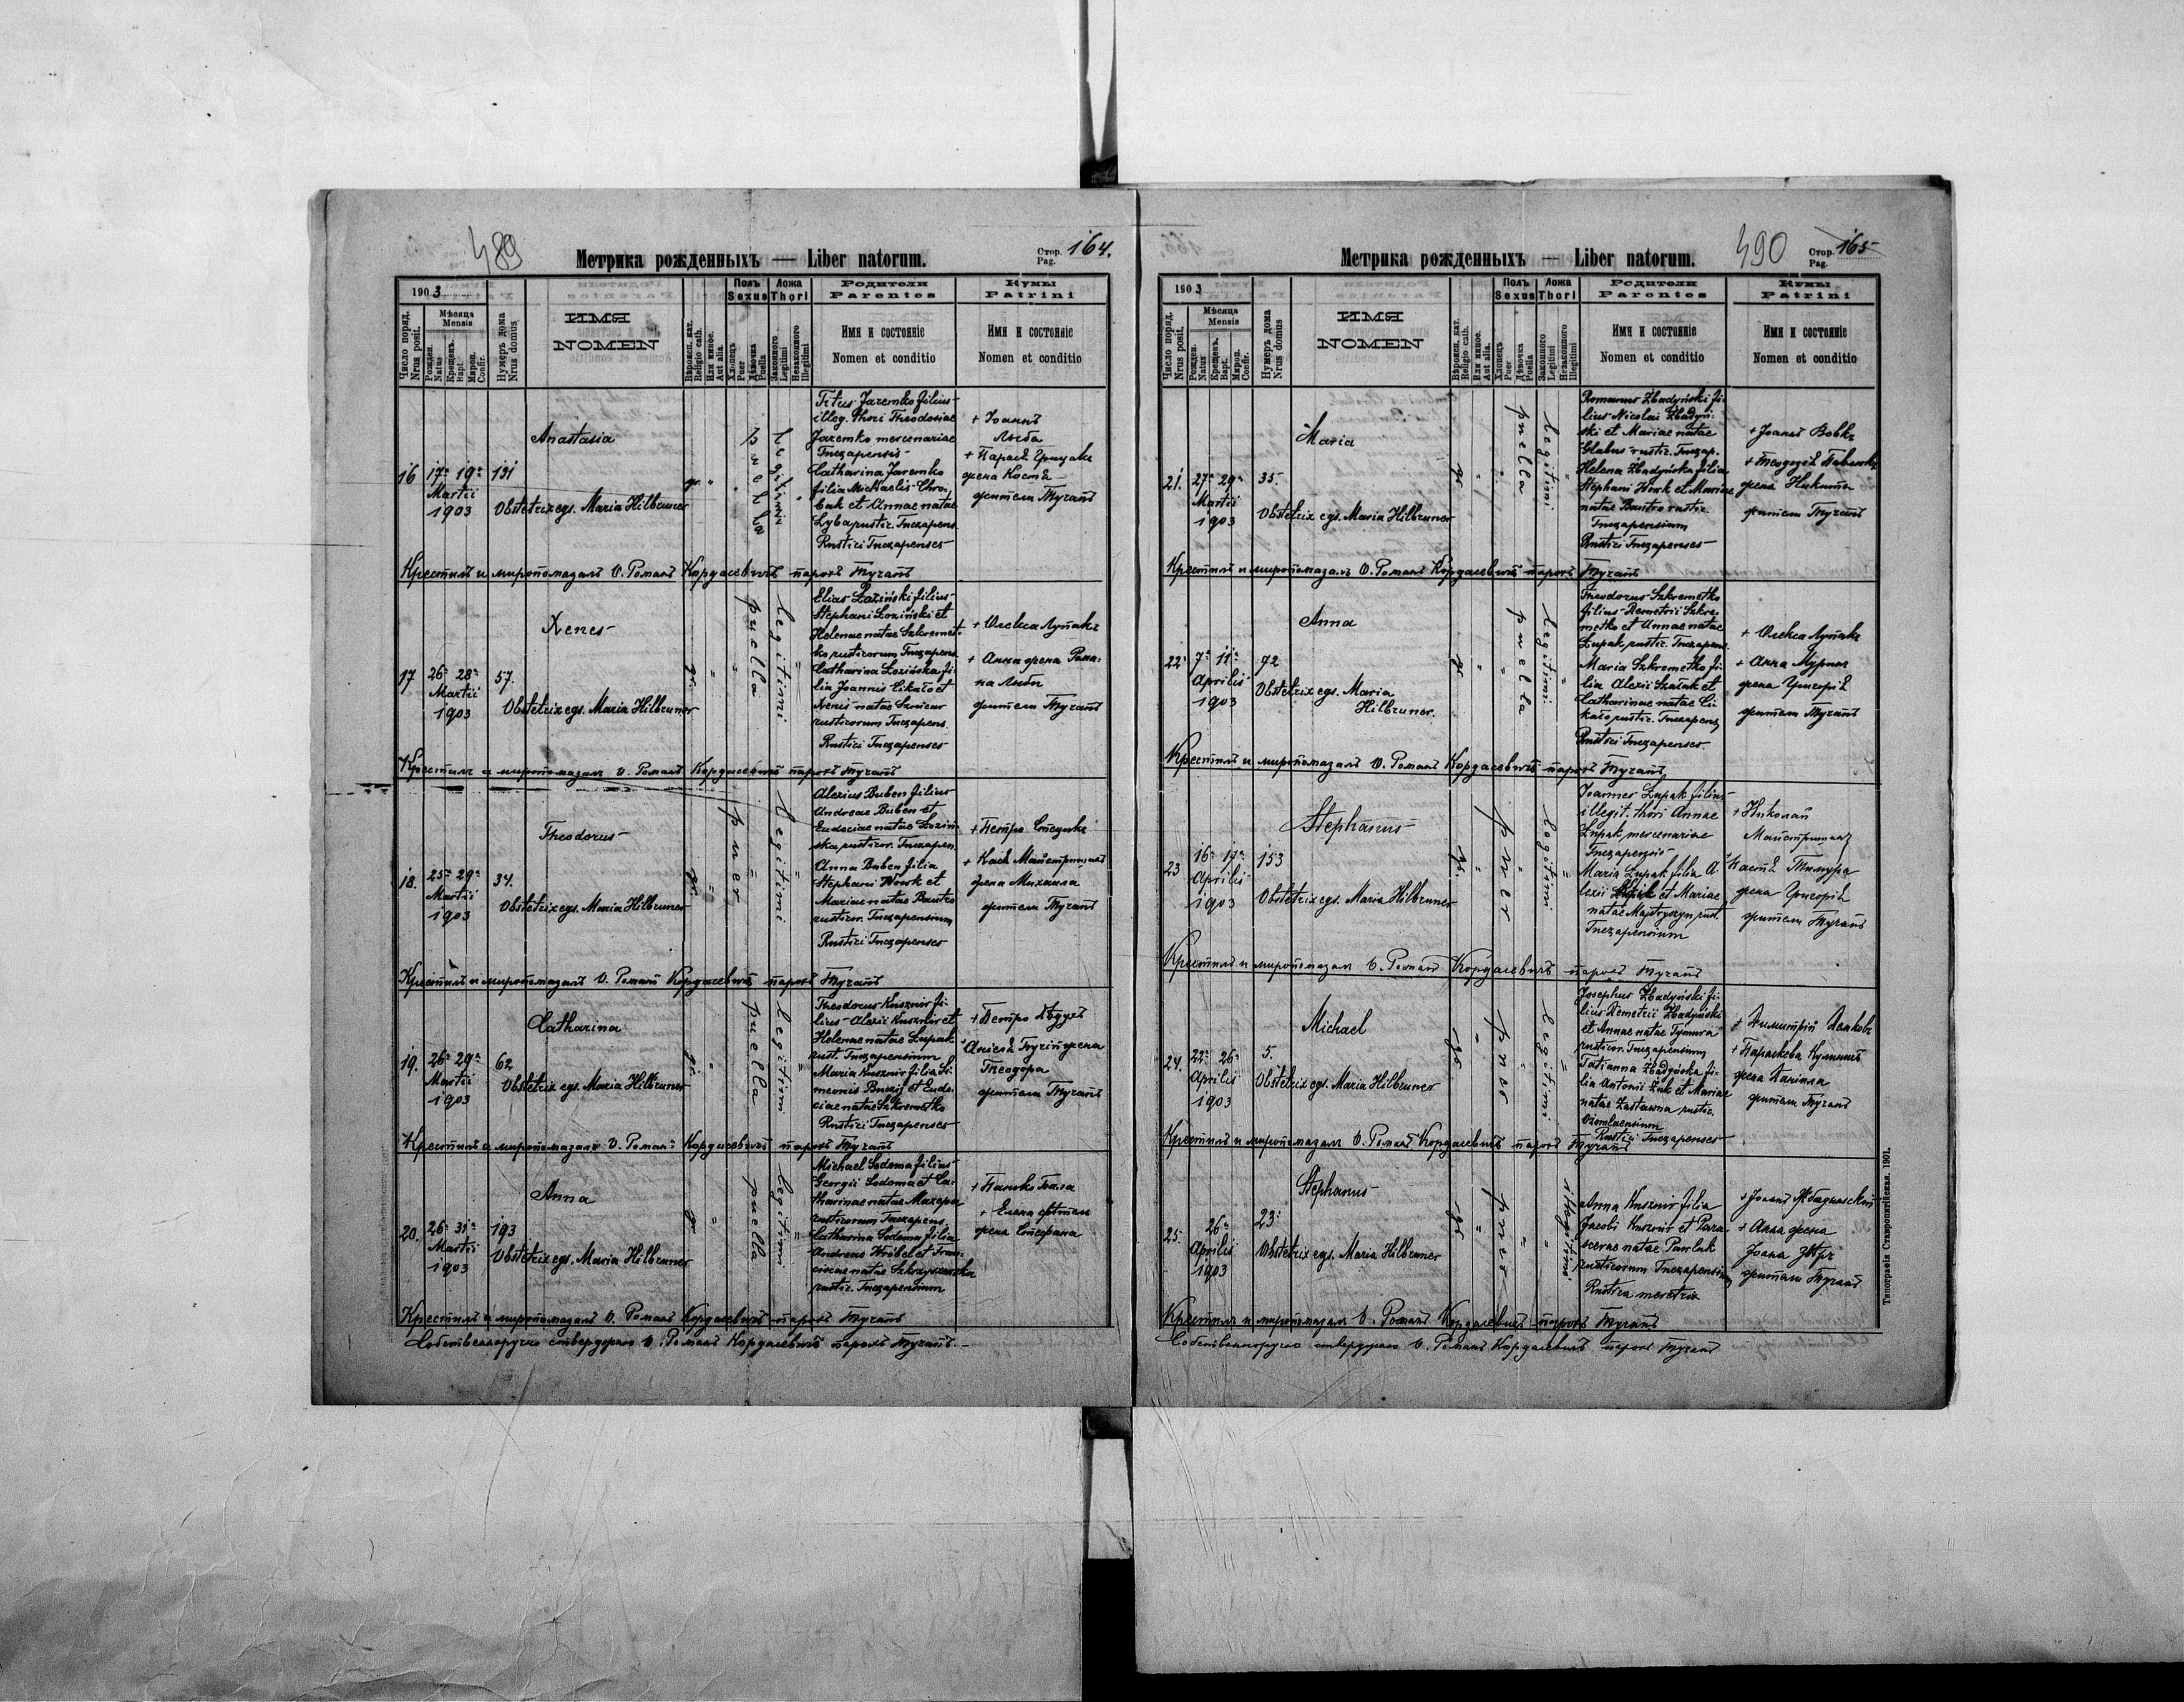 489
Метрика рожденныхъ — Liber natorum.
Стор. Pag. 164.
1903
Число поряд. Nrus posit.
Мѣсяца Mensis
Рожден. Natus
Крещенъ. Bapt.
Миров. Confir.
Нумеръ дома Nrus domus
ИМЯ
NOMEN
Religio cath.
Или иное. Aut alia.
Полъ Sexus
Хлопецъ Puer
Дѣвочка Puella
Ложа Thori
Законного Legitimi
Незаконного Illegitimi
Родители Parentes
Имя и состоянiе
Nomen et conditio
Кумы Patrini
Имя и состоянiе
Nomen et conditio
16 17ª 19ª Martii 1903
131
Anastasia
Obstetrix egs. Maria Hilbruner
gr. "
puella
legitimi
Titus Jaremko filius
illeg. thori Theodosiae
Jaremko mercenariae
Tuczapensis
Catharina Jaremko
filia Michaelis Chro-
bak et Annae natae
Lyba rustic. Tuczapens.
Rustici Tuczapenses
+ Іоаннъ
Лыба
жена Костѣ
жители Тучапъ
Крестилъ и миропомазалъ О. Романъ Кордасевичъ парохъ Тучапъ
17 26ª 28ª Martii 1903
57.
Xenes
Obstetrix egs. Maria Hilbruner
gr. "
puella
legitimi
Elias Łoziński filius
Stephani Łoziński et
Helenae natae Szkremet-
ko rusticorum Tuczapens.
Catharina Łozińska fi-
lia Joannis Cikało et
Xenis natae
rusticorum Tuczapens.
Rustici Tuczapenses
+ Олекса Лупакъ
+ Анна жена Рома-
на Лыбы
жители Тучапъ
Крестилъ и миропомазалъ О. Романъ Кордасевичъ парохъ Тучапъ
18. 25ª 29ª Martii 1903
34.
Theodorus
Obstetrix egs. Maria Hilbruner
gr. "
puer
legitimi
Alexius Buben filius
Andreae Buben et
Eudociae natae Łoziń-
ska, rusticor. Tuczapen.
Anna Buben filia
Stephani Wowk et
Mariae natae Bautro
rusticor. Tuczapensium
Rustici Tuczapenses
+ Петро Стецукъ
жена Михаила
жители Тучапъ
Крестилъ и миропомазалъ О. Романъ Кордасевичъ парохъ Тучапъ
19. 26ª 29ª Martii 1903
62
Catharina
Obstetrix egs. Maria Hilbruner
gr. "
puella
legitimi
Theodorus Kusznir fi-
lius Alexii Kusznir et
Helenae natae Łupak
rust. Tuczapensium
Maria Kusznir filia Si-
meonis et Eudo-
ciae natae Szkremetko
Rustici Tuczapenses
+ Петро
жена
Теодора
жители Тучапъ
Крестилъ и миропомазалъ О. Романъ Кордасевичъ парохъ Тучапъ
20. 26ª 31ª Martii 1903
193
Anna
Obstetrix egs. Maria Hilbruner
gr. "
puella
legitimi
Michael Sodoma filius
Georgii Sodoma et Ca-
tharinae natae Mazepa
rusticorum Tuczapens.
Catharina Sodoma filia
Andreae Wróbel et Fran-
ciscae natae Szkrzyszewska
rustic. Tuczapensium
+ Елена
жена Стефана
Крестилъ и миропомазалъ О. Романъ Кордасевичъ парохъ Тучапъ
Собственноручно стверджаю О. Романъ Кордасевичъ парохъ Тучапъ.
490
Метрика рожденныхъ — Liber natorum.
Стор. Pag. 165
1903
Число поряд. Nrus posit.
Мѣсяца Mensis
Рожден. Natus
Крещенъ. Bapt.
Миров. Confir.
Нумеръ дома Nrus domus
ИМЯ
NOMEN
Religio cath.
Или иное. Aut alia.
Полъ Sexus
Хлопецъ Puer
Дѣвочка Puella
Ложа Thori
Законного Legitimi
Незаконного Illegitimi
Родители Parentes
Имя и состоянiе
Nomen et conditio
Кумы Patrini
Имя и состоянiе
Nomen et conditio
21. 27ª 29ª Martii 1903
35.
Maria
Obstetrix egs. Maria Hilbruner
gr "
puella
legitimi
Romanus Zbadyński fi-
lius Nicolai Zbadyń-
ski et Mariae natae
Glabus rustic. Tuczap.
Helena Zbadyńska filia
Stephani Wowk et Mariae
natae Bautro rustic.
Tuczapensium
Rustici Tuczapenses
+ Іоаннъ Вовкъ
жена Никиты
жители Тучапъ
Крестилъ и миропомазалъ О. Романъ Кордасевичъ парохъ Тучапъ
22. 7ª 11ª Aprilis 1903
72
Anna
Obstetrix egs. Maria
Hilbruner.
gr "
puella
legitimi
Theodorus Szkremetko
filius Demetrii Szkre-
metko et Annae natae
Łupak, rustic. Tuczapens.
Maria Szkremetko fi-
lia Alexii et
Catharinae natae Ci-
kało rustic. Tuczapens.
Rustici Tuczapenses.
+ Олекса Лупакъ
+ Анна
жена Григорiя
жители Тучапъ
Крестилъ и миропомазалъ О. Романъ Кордасевичъ парохъ Тучапъ
23 16ª 17ª Aprilis 1903
153
Stephanus
Obstetrix egs. Maria Hilbruner
gr. "
puer
legitimi
Joannes Łupak filius
illegit. thori Annae
Łupak, mercenariae
Tuczapensis
Maria Łupak filia A-
lexii et Mariae
natae Majstryszyn rust.
Tuczapensium
+ Николай
Майстришинъ
Тимура
жена Григорiя
жители Тучапъ
Крестилъ и миропомазалъ О. Романъ Кордасевичъ парохъ Тучапъ
24. 22ª 26ª Aprilis 1903
5.
Michael
Obstetrix egs. Maria Hilbruner
gr "
puer
legitimi
Josephus Zbadyński fi-
lius Demetrii Zbadyński
et Annae natae Tymura
rusticor. Tuczapensium
Tatianna Zbadyńska fi-
lia Antonii Żuk et Mariae
natae Zastawna rustic.
Rustici Tuczapenses
+ Димитрiй
+ Параскева
жена Данiила
жители Тучапъ
Крестилъ и миропомазалъ О. Романъ Кордасевичъ парохъ Тучапъ
25. 26ª Aprilis 1903
23.
Stephanus
Obstetrix egs. Maria Hilbruner
gr "
puer
illegitimi
Anna Kusznir filia
Jacobi Kusznir et Para-
scevae natae Pawluk
rusticorum Tuczapensium
Rustica meretrix
+ Іоаннъ Жбадыньскiй
+ Анна жена
Іоана
жители Тучапъ
Крестилъ и миропомазалъ О. Романъ Кордасевичъ парохъ Тучапъ
Собственноручно стверджаю О. Романъ Кордасевичъ парохъ Тучапъ
Типографiя Ставропигiйская. 1901.